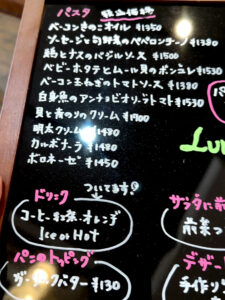 パスタ 税込価格
ベーコンきのこオイル ¥1350
ソーセージと旬野菜のペペロンチーノ ¥1380
鶏とナスのバジルソース ¥1500
ベビーホタテとムール貝のボンゴレ ¥1530
ベーコン玉ねぎのトマトソース ¥1380
白身魚のアンチョビオリーブトマト ¥1530
貝と青のりのクリーム ¥1700
明太クリーム ¥1480
カルボナーラ ¥1480
ボロネーゼ ¥1450
パ
Lu
ついてます
ドリンク
コーヒー・紅茶・オレンジ
Ice or Hot
サラダに前
前菜っ
パンのトッピング
ガーリックバター ¥130
デザー
手作り